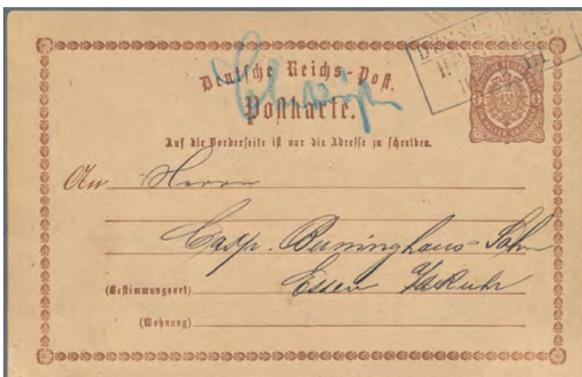 Deutsche Reichs-Post.
Postkarte.
Auf die Vorderseite ist nur die Adresse zu schreiben.
An Herrn
Casp. Berninghaus Sohn
(Bestimmungsort) Essen a/d Ruhr
(Wohnung)